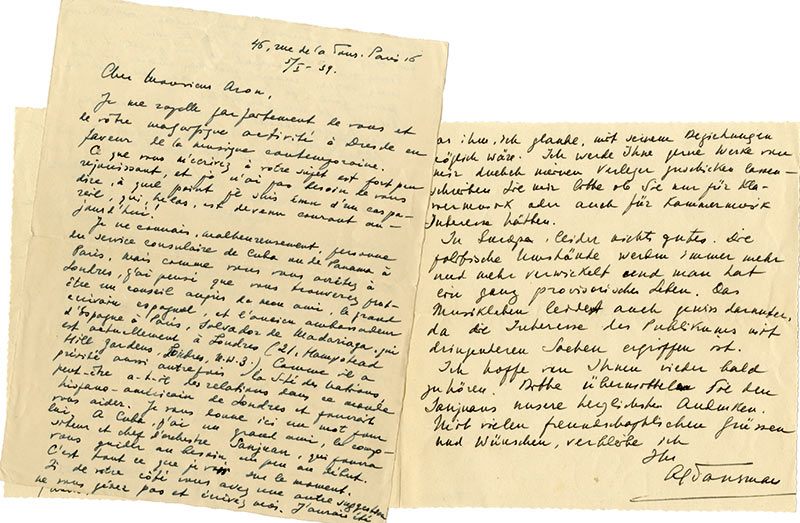 46, rue de la Tour. Paris 16
5/I - 39.
Cher Monsieur Aron,
Je me rappelle parfaitement de vous et
de votre magnifique activité à Dresde en
faveur de la musique contemporaine.
Ce que vous m'écrivez à votre sujet est fort peu
réjouissant, et je n'ai pas besoin de vous
dire, à quel point je suis ému d'un cas pa-
reil, qui, hélas, est devenu courant au-
jourd'hui!
Je ne connais, malheureusement, personne
du service consulaire de Cuba ou de Panama à
Paris, mais comme vous vous arrêtez à
Londres, j'ai pensé que vous trouverez peut-
être un conseil auprès de mon ami, le grand
écrivain espagnol, et l'ancien ambassadeur
d'Espagne à Paris, Salvador de Madariaga, qui
est actuellement à Londres (21, Hampstead
Hill gardens, Londres, N.W.3.) Comme il a
présidé aussi autrefois la Sté des Nations
peut-être a-t-il des relations dans ce monde
hispano-américain de Londres et pourrait
vous aider. Je vous donne ici un mot pour
lui. A Cuba, j'ai un grand ami, le compo-
siteur et chef d'orchestre Sanjuan, qui pourra
vous guider au besoin, un peu au début.
C'est tout ce que je sur le moment.
Si de votre côté vous avez une autre suggestion
ne vous gênez pas et écrivez moi. J'aurais été
was ihm, ich glaube, mit seinem Beziehungen
möglich wäre. Ich werde Ihne gerne Werke von
mir durch meinen Verleger zuschicken lassen-
schreiben Sie mir bitte ob Sie nur für Kla-
viermusik oder auch für Kammermusik
Interesse hätten.
In Europa, leider nichts gutes. Die
politische Umstände werden immer mehr
und mehr verwickelt und man hat
ein ganz provisorisches Leben. Das
Musikleben leidet auch gewiss darunter,
da die Interesse des Publikums mit
dringenderen Sachen ergriffen ist.
Ich hoffe von Ihnen wieder bald
zu hören. Bitte übermitteln Sie den
Sanjuans unsere herzlichsten Andenken.
Mit vielen freundschaftlichen Grüssen
und Wünschen, verbleibe ich
Ihr
Al Tansman